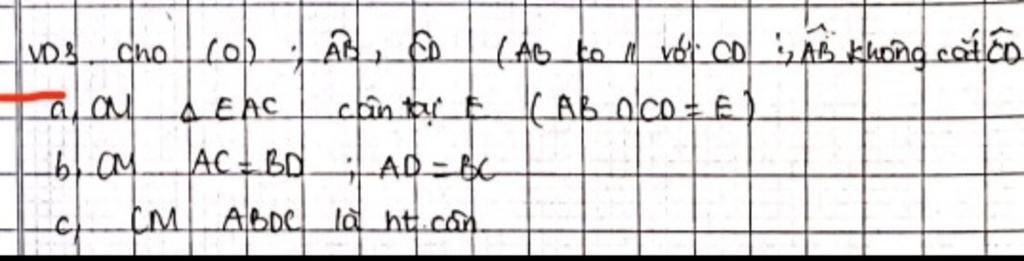 VD3. Cho (O) ; AB̂, CD̂ (AB ko // với CD ; AB̂ không cắt CD̂
a, CM Δ EAC cân tại E (AB ∩ CD = E)
b, CM AC = BD ; AD = BC
c, CM ABDC là ht.cân.